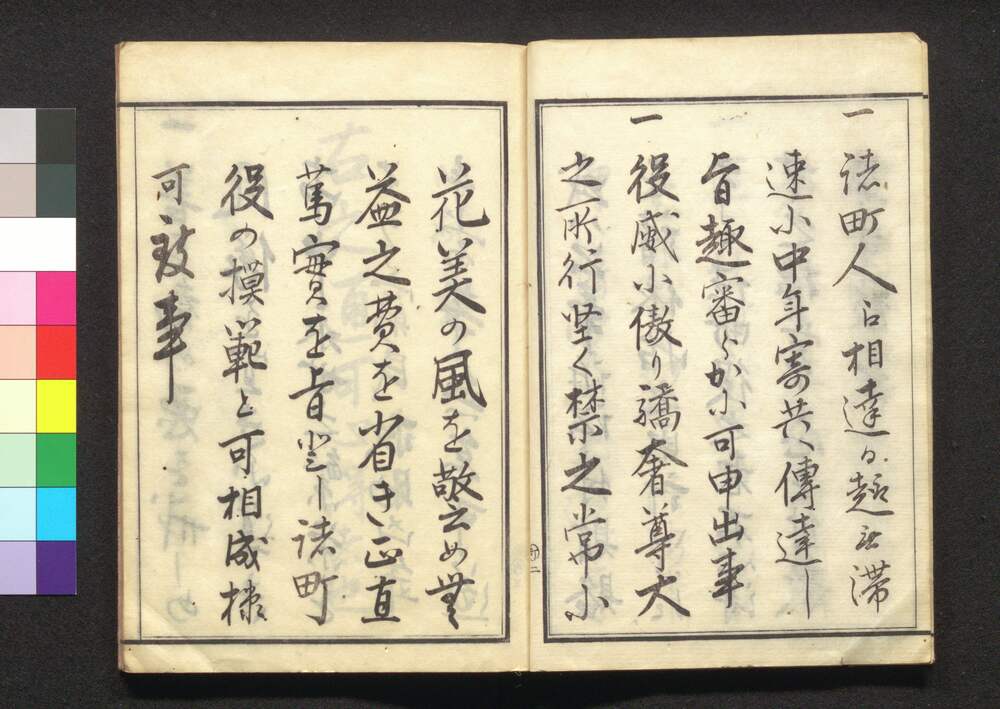 一 諸町人江相達候趣無滞
速に中年寄共へ傳達し
旨趣審らかに可申出事
一 役威に傲り驕奢尊大
之所行堅く禁之常に
花美の風を警め無
益之費を省き正直
篤實を旨とし諸町
役の摸範と可相成様
可致事